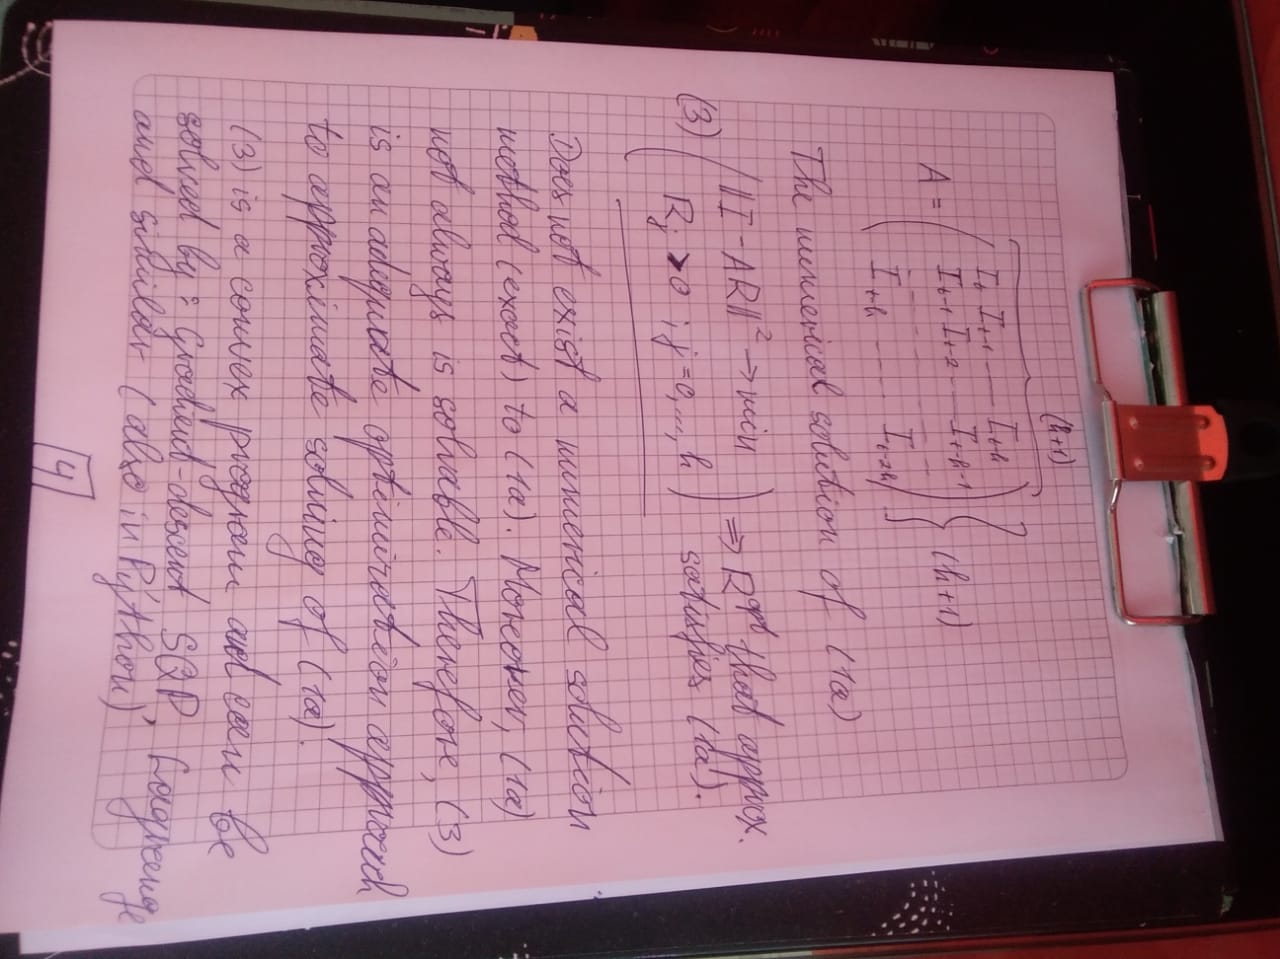 (h+1)
A = ( I_t I_{t-1} ---- I_{t-h}
I_{t-1} I_{t-2} ---- I_{t-h-1}
- - - - - - - -
I_{t-h} ---- I_{t-2h} ) } (h+1)
The numerical solution of (1a)
(3) ( ||I - AR||² → min
R_j > 0 ; j = 0, ..., h ) ⇒ R^{opt} that approx.
satisfies (1a).
Does not exist a numerical solution
method (exact) to (1a). Moreover, (1a)
not always is solvable. Therefore, (3)
is an adequate optimization approach
to approximate solving of (1a).
(3) is a convex program and can be
solved by: Gradient-descent, SQP, Lagrange
and similar (also in Python)
4